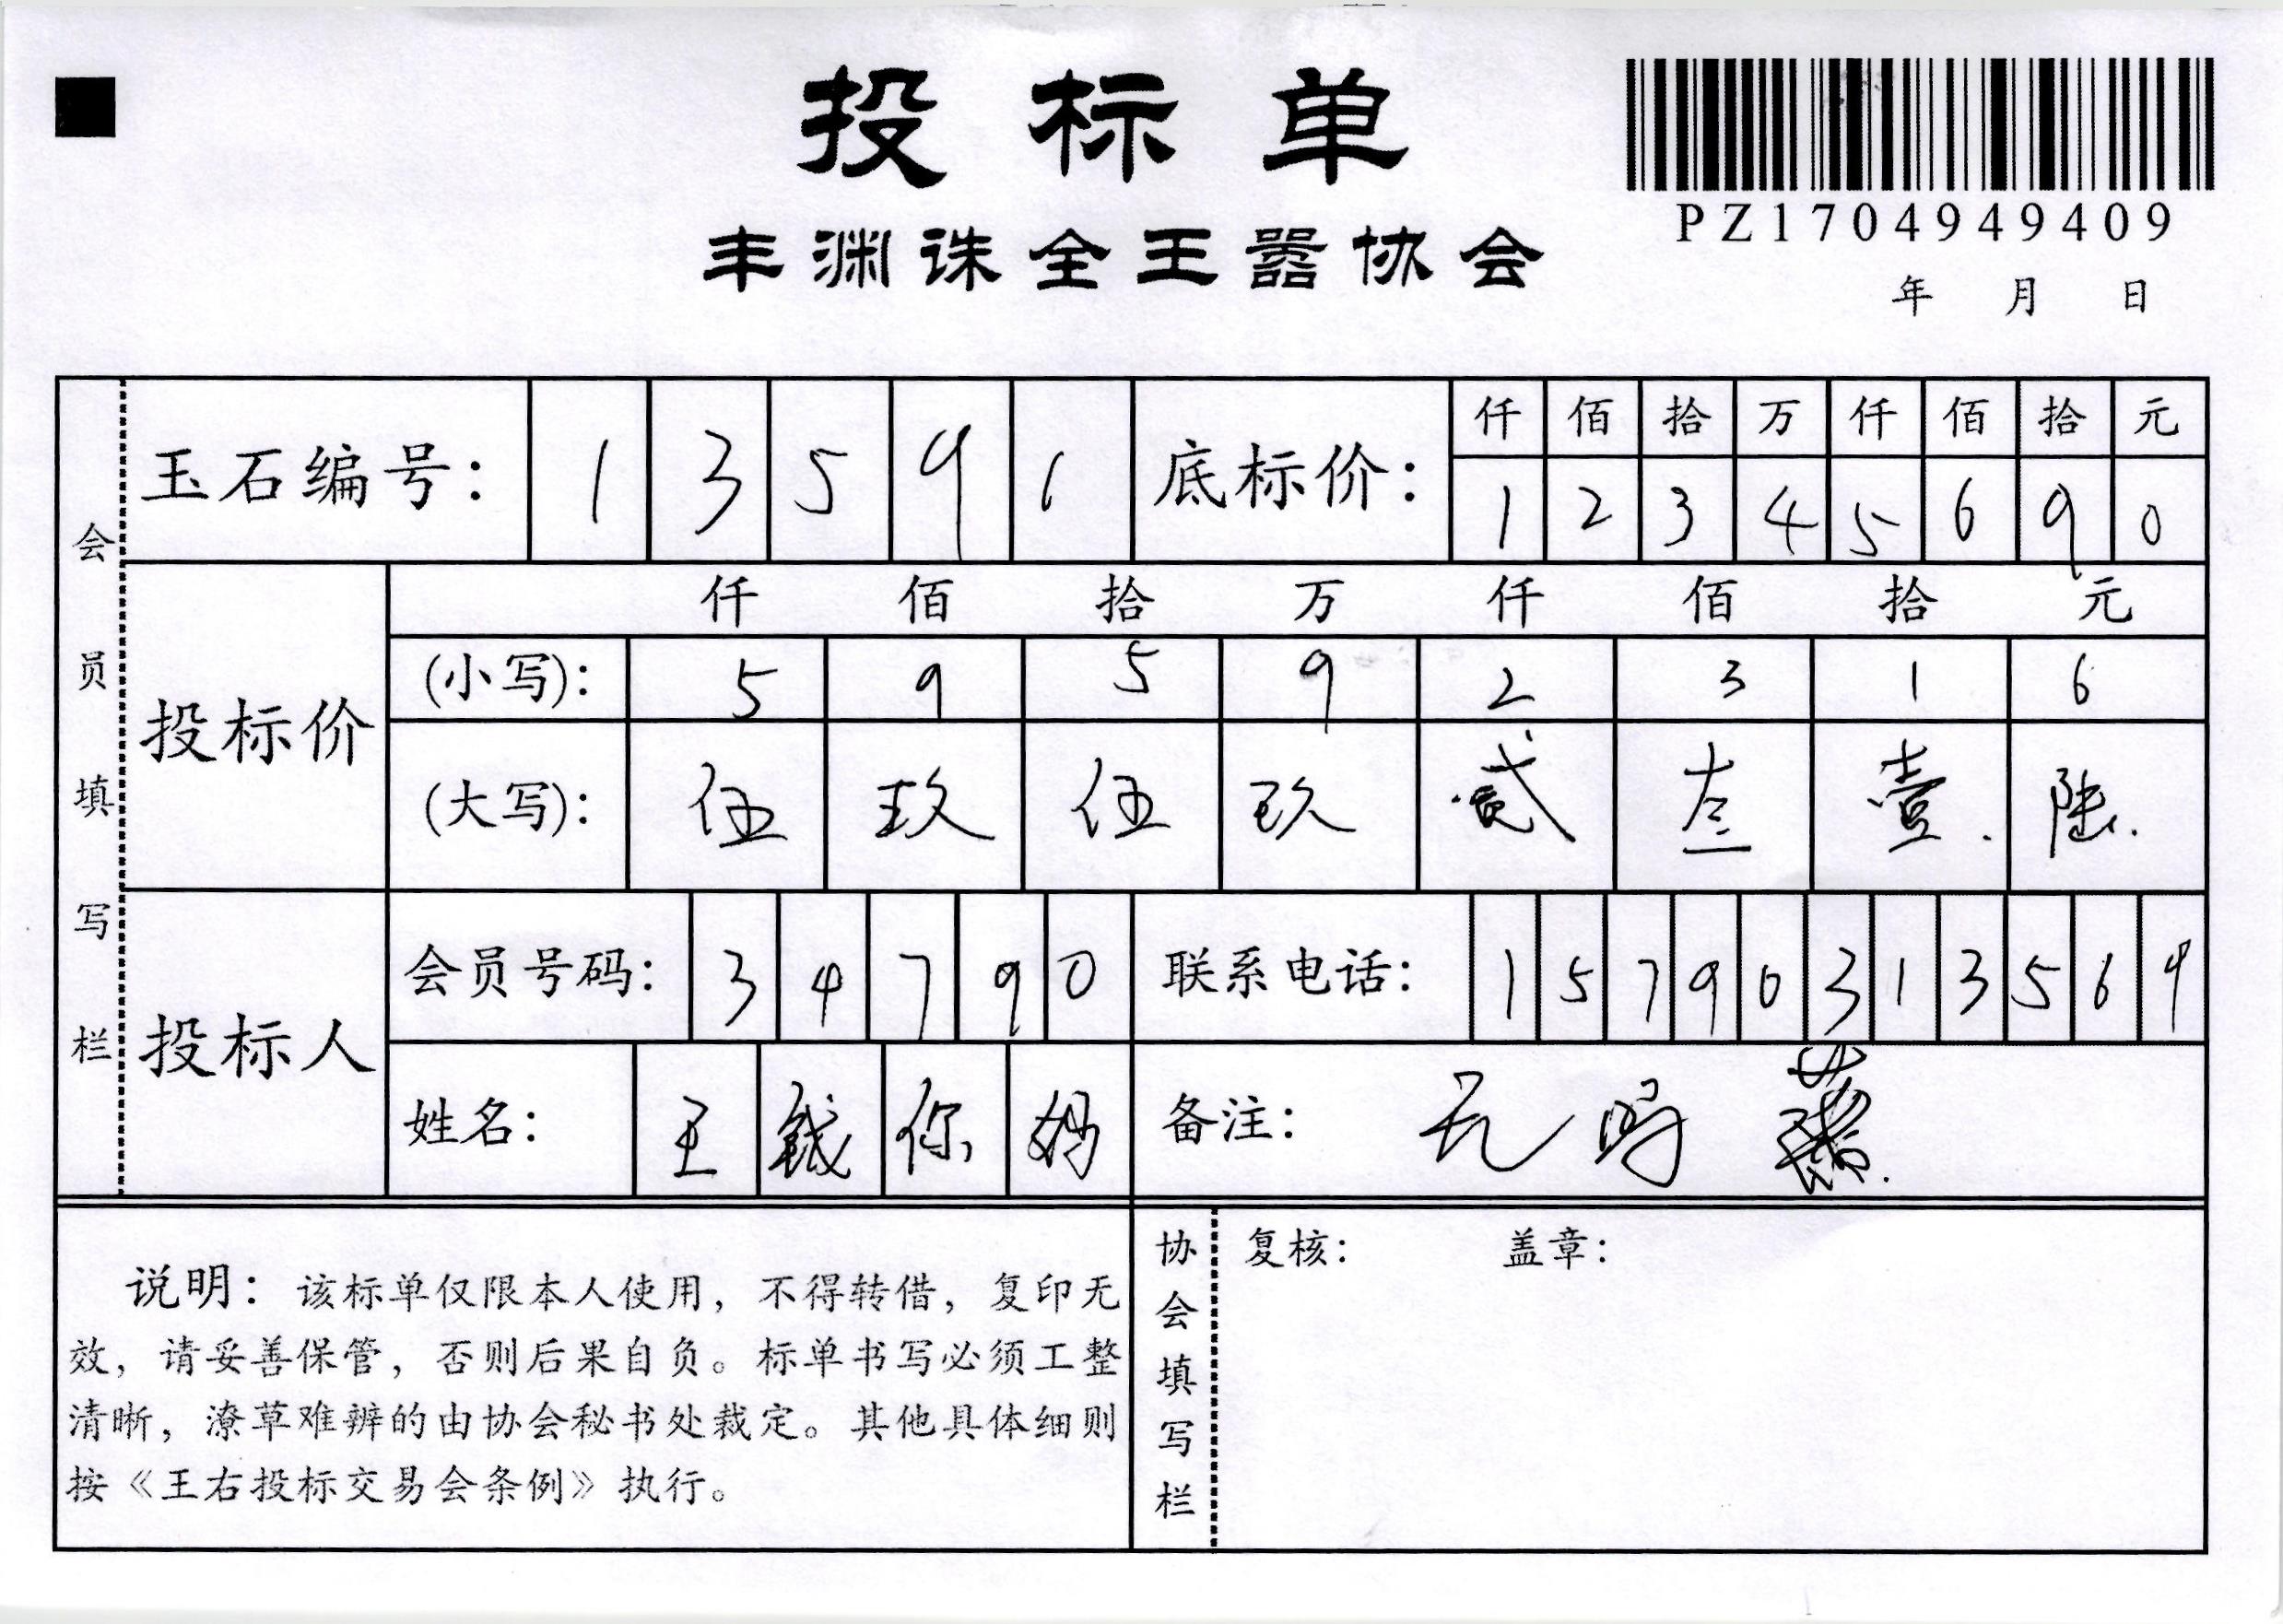 投标单
丰渊诛全王嚣协会
PZ1704949409
年 月 日
会员填写栏
玉石编号: 1 3 5 9 1
底标价: 仟 佰 拾 万 仟 佰 拾 元
1 2 3 4 5 6 9 0
投标价
仟 佰 拾 万 仟 佰 拾 元
(小写): 5 9 5 9 2 3 1 6
(大写): 伍 玖 伍 玖 贰 叁 壹 陆
投标人
会员号码: 3 4 7 9 0
联系电话: 1 5 7 9 0 3 1 3 5 6 9
姓名: 王 钱 你
备注: 无
说明: 该标单仅限本人使用, 不得转借, 复印无
效, 请妥善保管, 否则后果自负。标单书写必须工整
清晰, 潦草难辨的由协会秘书处裁定。其他具体细则
按《王右投标交易会条例》执行。
协会填写栏
复核: 盖章: